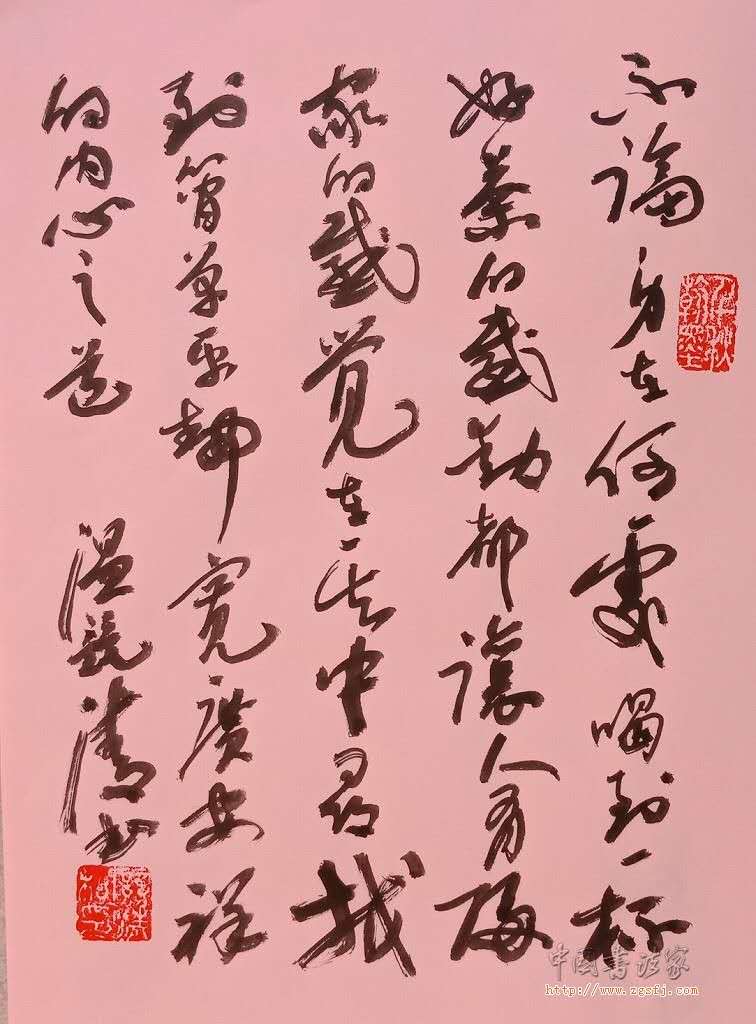 不論身在何處喝到一杯
好茶的感動都讓人有歸
家的感觉在一中尋找
到簡單平静寬廣安祥
的内心之道
温清书
千秋翰墨
中國書法家
http://www.zgsfj.com